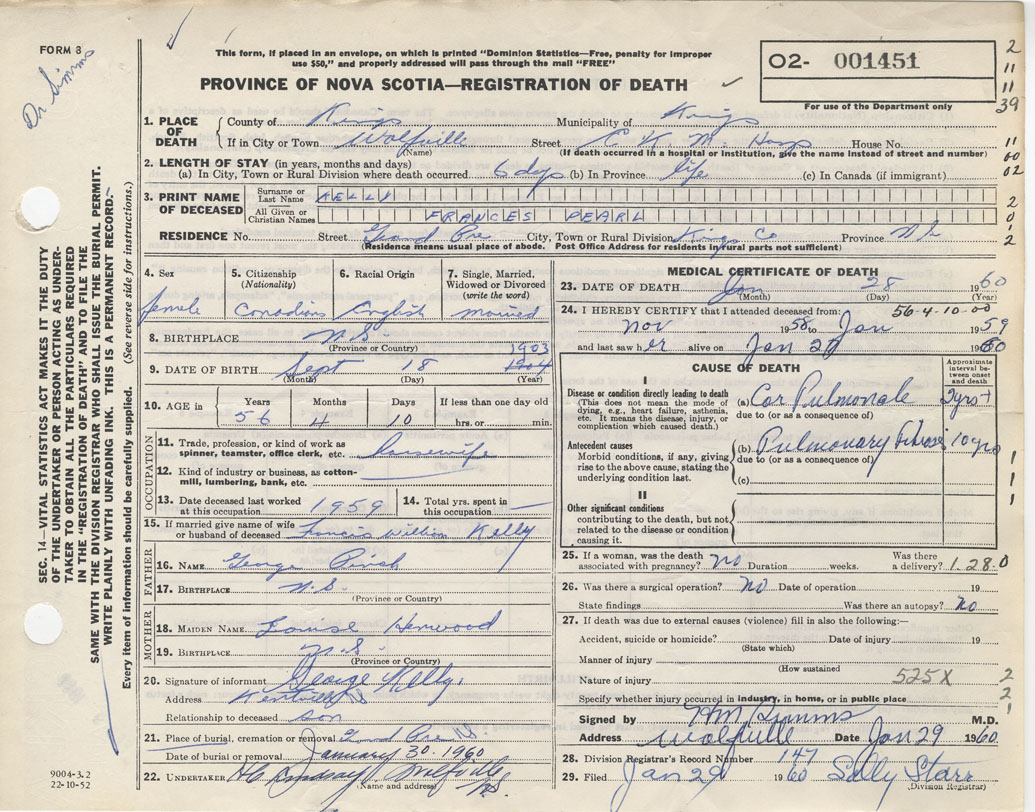 FORM 8
Dr Simms
This form, if placed in an envelope, on which is printed "Dominion Statistics—Free, penalty for improper
use $50," and properly addressed will pass through the mail "FREE"
PROVINCE OF NOVA SCOTIA—REGISTRATION OF DEATH
O2- 001451
For use of the Department only
2
11
11
39
11
60
02
2
0
1
2
1. PLACE OF DEATH
County of Kings Municipality of Kings
If in City or Town Wolfville Street E. K. M. Hosp House No.
(Name) (If death occurred in a hospital or institution, give the name instead of street and number)
2. LENGTH OF STAY (in years, months and days)
(a) In City, Town or Rural Division where death occurred 6 days (b) In Province life (c) In Canada (if immigrant)
3. PRINT NAME OF DECEASED
Surname or Last Name KELLY
All Given or Christian Names FRANCES PEARL
RESIDENCE No. Street Grand Pre City, Town or Rural Division Kings Co Province N.S.
(Residence means usual place of abode. Post Office Address for residents in rural parts not sufficient)
4. Sex
female
5. Citizenship (Nationality)
Canadian
6. Racial Origin
English
7. Single, Married, Widowed or Divorced (write the word)
married
8. BIRTHPLACE N.S.
(Province or Country)
1903
9. DATE OF BIRTH Sept 18 1904
(Month) (Day) (Year)
10. AGE in Years Months Days If less than one day old
56 4 10 hrs. or min.
OCCUPATION
11. Trade, profession, or kind of work as spinner, teamster, office clerk, etc. housewife
12. Kind of industry or business, as cotton-mill, lumbering, bank, etc.
13. Date deceased last worked at this occupation 1959
14. Total yrs. spent in this occupation —
15. If married give name of wife or husband of deceased Francis William Kelly
FATHER
16. NAME George
17. BIRTHPLACE N.S.
(Province or Country)
MOTHER
18. MAIDEN NAME Louise Harwood
19. BIRTHPLACE N.S.
(Province or Country)
20. Signature of informant George Kelly
Address Kentville
Relationship to deceased son
21. Place of burial, cremation or removal Grand Pre NS
Date of burial or removal January 30, 1960
22. UNDERTAKER Lindsay Wolfville NS
(Name and address)
MEDICAL CERTIFICATE OF DEATH
23. DATE OF DEATH Jan 28 1960
(Month) (Day) (Year)
24. I HEREBY CERTIFY that I attended deceased from: 56-4-10-00
Nov 1958 to Jan 1959
and last saw her alive on Jan 27 1960
CAUSE OF DEATH
Approximate interval between onset and death
I
Disease or condition directly leading to death
(This does not mean the mode of dying, e.g., heart failure, asthenia, etc. It means the disease, injury, or complication which caused death.)
(a) Cor Pulmonale 5yrs+
due to (or as a consequence of)
Antecedent causes
Morbid conditions, if any, giving rise to the above cause, stating the underlying condition last.
(b) Pulmonary Fibrosis 10 yrs
due to (or as a consequence of)
(c)
II
Other significant conditions
contributing to the death, but not related to the disease or condition causing it.
1
1
1
25. If a woman, was the death associated with pregnancy? no Duration weeks. Was there a delivery? 1.28.0
26. Was there a surgical operation? no Date of operation 19
State findings Was there an autopsy? no
27. If death was due to external causes (violence) fill in also the following:—
Accident, suicide or homicide? Date of injury 19
(State which)
Manner of injury
(How sustained)
Nature of injury 525X
Specify whether injury occurred in industry, in home, or in public place
2
2
1
Signed by M.D.
Address Wolfville Date Jan 29 1960
28. Division Registrar's Record Number 147
29. Filed Jan 29 1960 Sally Starr
(Division Registrar)
SEC. 14—VITAL STATISTICS ACT MAKES IT THE DUTY
OF THE UNDERTAKER OR PERSON ACTING AS UNDER-
TAKER TO OBTAIN ALL THE PARTICULARS REQUIRED
IN THE "REGISTRATION OF DEATH" AND TO FILE THE
SAME WITH THE DIVISION REGISTRAR WHO SHALL ISSUE THE BURIAL PERMIT.
WRITE PLAINLY WITH UNFADING INK. THIS IS A PERMANENT RECORD.
Every item of information should be carefully supplied. (See reverse side for instructions.)
9004-3.2
22-10-52